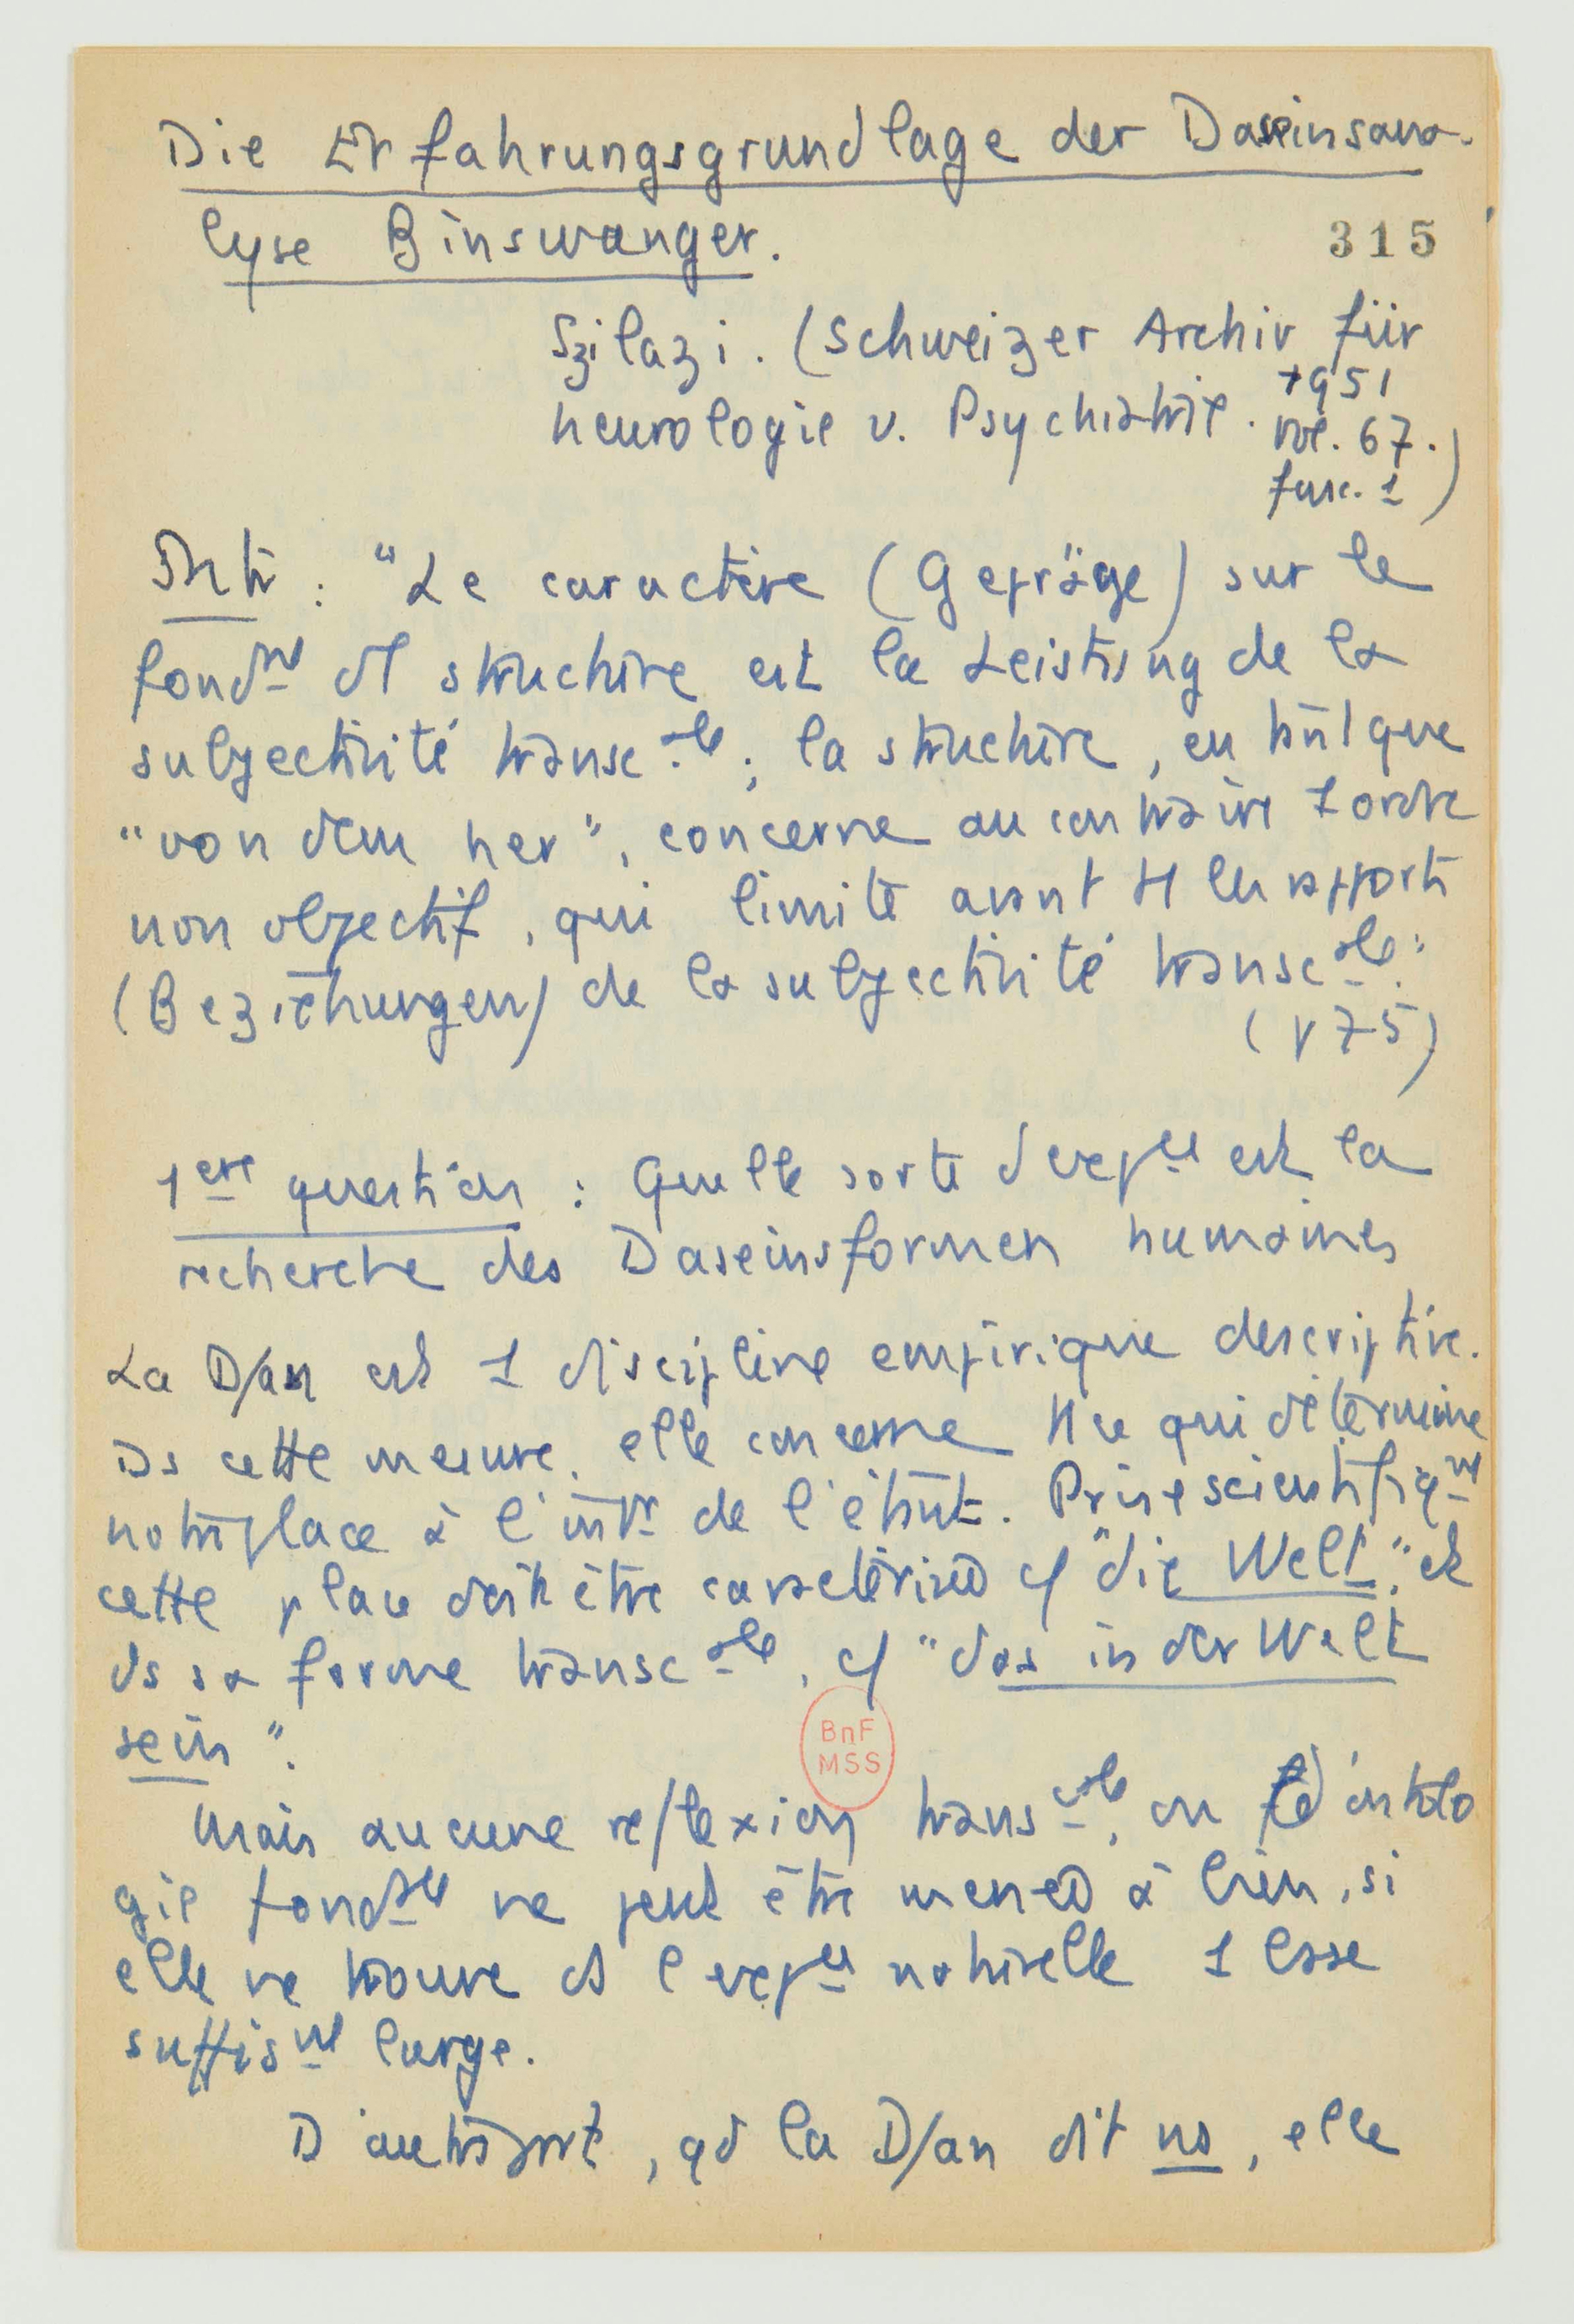 Die Erfahrungsgrundlage der Daseinsana-
lyse Binswanger.
315
Szilazi. (Schweizer Archiv für
neurologie u. Psychiatrie. 1951
vol. 67.
fasc. 1)
: "Le caractère (Gepräge) sur le
fondnt d'1 structure est la Leistung de la
subjectivité transcale; la structure, en tant que
"von dem her", concerne au contraire 1 ordre
non objectif, qui limite avant tt les rapports
(Beziehungen) de la subjectivité transcale."
(p 75)
1ere question : Quelle sorte d'expce est la
recherche des Daseinsformen humaines
La D/an est 1 discipline empirique descriptive.
Ds cette mesure, elle concerne tt ce qui détermine
notre place à l'intr de l'étant. Prise scientifiqnt
cette place doit être caractérisée c/ "die Welt", et
ds sa forme transcale, c/ "das in der Welt
sein".
Mais aucune reflexion transcale, ou ontolo
gie fondale ne peut être menée à bien, si
elle ne trouve ds l'expce naturelle 1 base
suffisnt large.
D'autre part, qd la D/an dit ns, elle
BnF
MSS